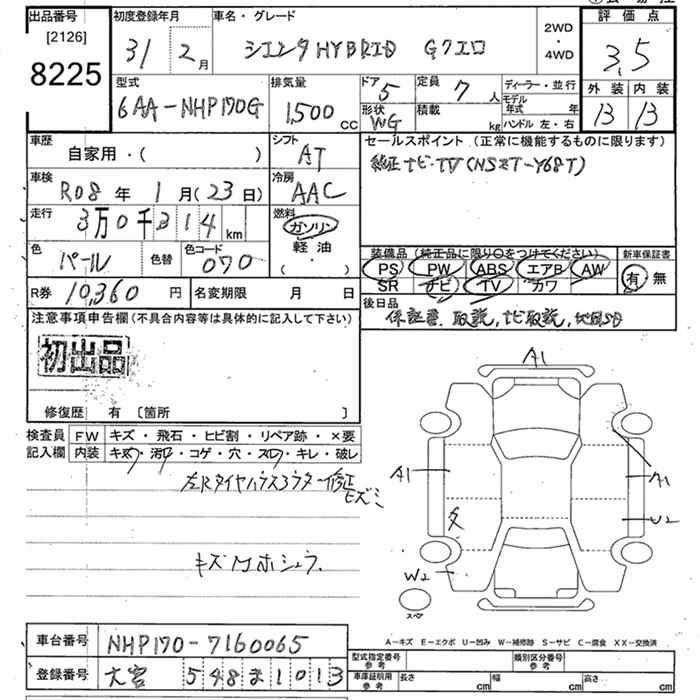 出品番号
[2126]
8225
初度登録年月
31 2月
車名・グレード
シエンタHYBRID Gクエロ
2WD
・
4WD
評価点
3.5
外装 内装
B B
型式
6AA-NHP170G
排気量
1,500cc
ドア 5
形状 WG
定員 7人
積載 kg
ディーラー・並行
モデル年式 年
ハンドル 左・右
車歴
自家用・( )
シフト
AT
セールスポイント(正常に機能するものに限ります)
純正ナビ・TV(NSZT-Y68T)
車検
R08年1月(23日)
冷房
AAC
走行
3万0千314km
燃料
ガソリン
軽油
( ・ )
色
パール
色替
色コード
070
装備品(純正品に限り○をつけてください)
PS PW ABS エアB AW
SR ナビ TV カワ
新車保証書
有・無
R券 10,360円
名変期限 月 日
後日品
保証書、取説、ナビ取説、地図SD
注意事項申告欄(不具合内容等は具体的に記入して下さい)
初出品
修復歴 有 〔箇所 〕
検査員記入欄
FW キズ・飛石・ヒビ割・リペア跡・×要
内装 キズ・汚・コゲ・穴・スレ・キレ・破レ
左Rタイヤハウス
修正
キズ
A1
A1
A1
U2
W2
スペア
A-キズ E-エクボ U-凹み W-補修跡 S-サビ C-腐食 XX-交換済
車台番号 NHP170-7160065
登録番号 大宮 548ま1013
型式指定番号
参考
類別区分番号
参考
車庫証明用
参考
長さ cm 幅 cm 高さ cm